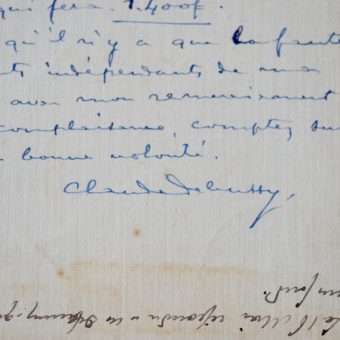 qui fera 1.400f.
qu'il n'y a que la faute
ts indépendants de ma
avec mon remerciement
complaisance, comptez sur
bonne volonté.
Claude Debussy,